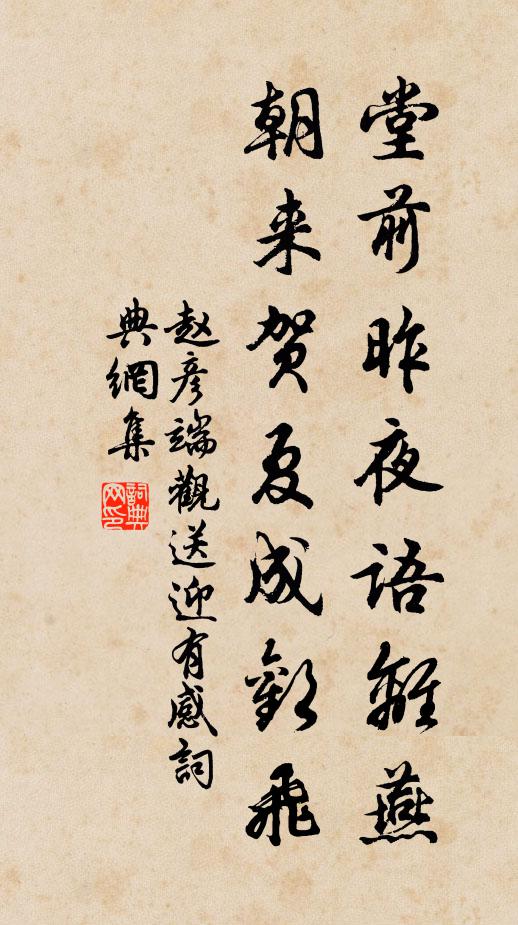 堂前昨夜语離燕
朝来贺夏成歡飛
赵彦端觀送迎有感詞
典網集
詞典网印